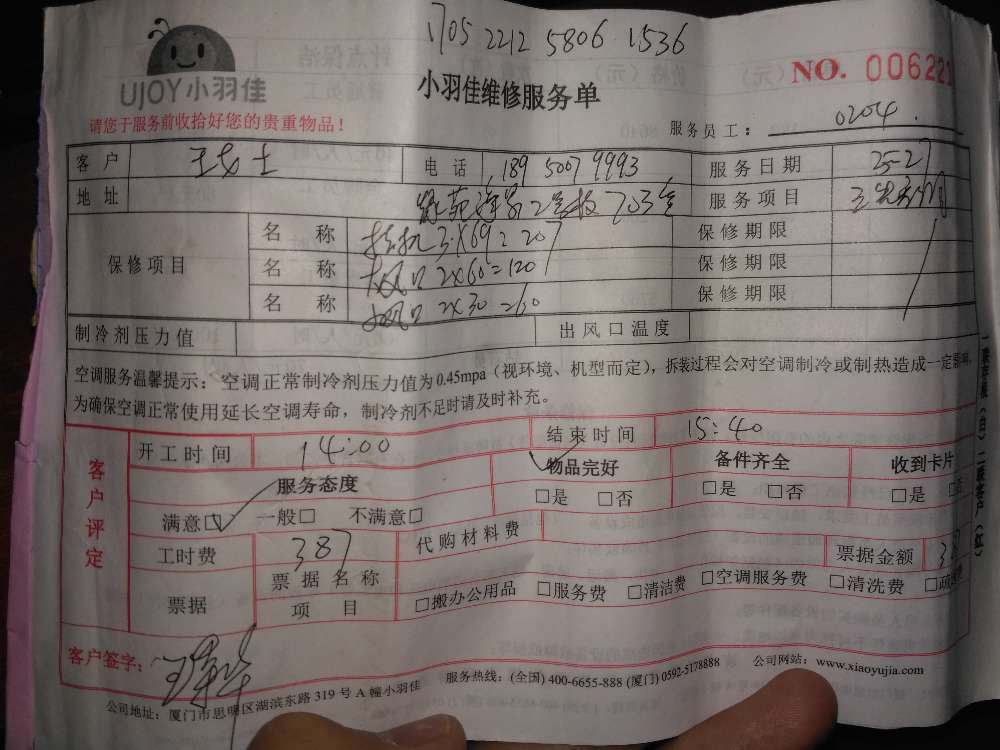 1705 2212 5806 1536
UJOY小羽佳
小羽佳维修服务单
NO. 006221
请您于服务前收拾好您的贵重物品！
服务员工： 0204
客户 王女士 电话 189 5007 9993 服务日期 25-27
地址 2号楼703室 服务项目
保修项目 名称 挂机 3×69=207 保修期限
名称 大风口 2×60=120 保修期限
名称 小风口 2×30=60 保修期限
制冷剂压力值 出风口温度
空调服务温馨提示：空调正常制冷剂压力值为0.45mpa（视环境、机型而定），拆装过程会对空调制冷或制热造成一定影响，
为确保空调正常使用延长空调寿命，制冷剂不足时请及时补充。
客户评定
开工时间 14:00 结束时间 15:40
服务态度 物品完好 备件齐全 收到卡片
满意□ 一般□ 不满意□ □是 □否 □是 □否 □是 □否
工时费 387 代购材料费 票据金额
票据 票据名称项目 □搬办公用品 □服务费 □清洁费 □空调服务费 □清洗费
客户签字：
公司地址：厦门市思明区湖滨东路319号A幢小羽佳 服务热线：(全国) 400-6655-888 (厦门) 0592-5178888 公司网站：www.xiaoyujia.com
（白）二联客户（红）